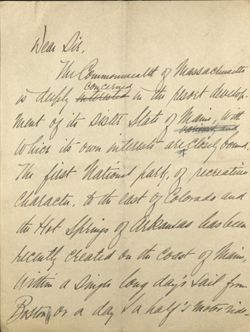 Dear Sir,
The Commonwealth of Massachusetts
concerned
is deeply interested in the resort develop-
ment of its sister State of Maine, with
which its own interests are closely bound.
The first National park, of recreative
character, to the east of Colorado and
the Hot Springs of Arkansas has been
recently created on the Coast of Maine,
within a single long day's sail from
Boston or a day & a half's motor ride